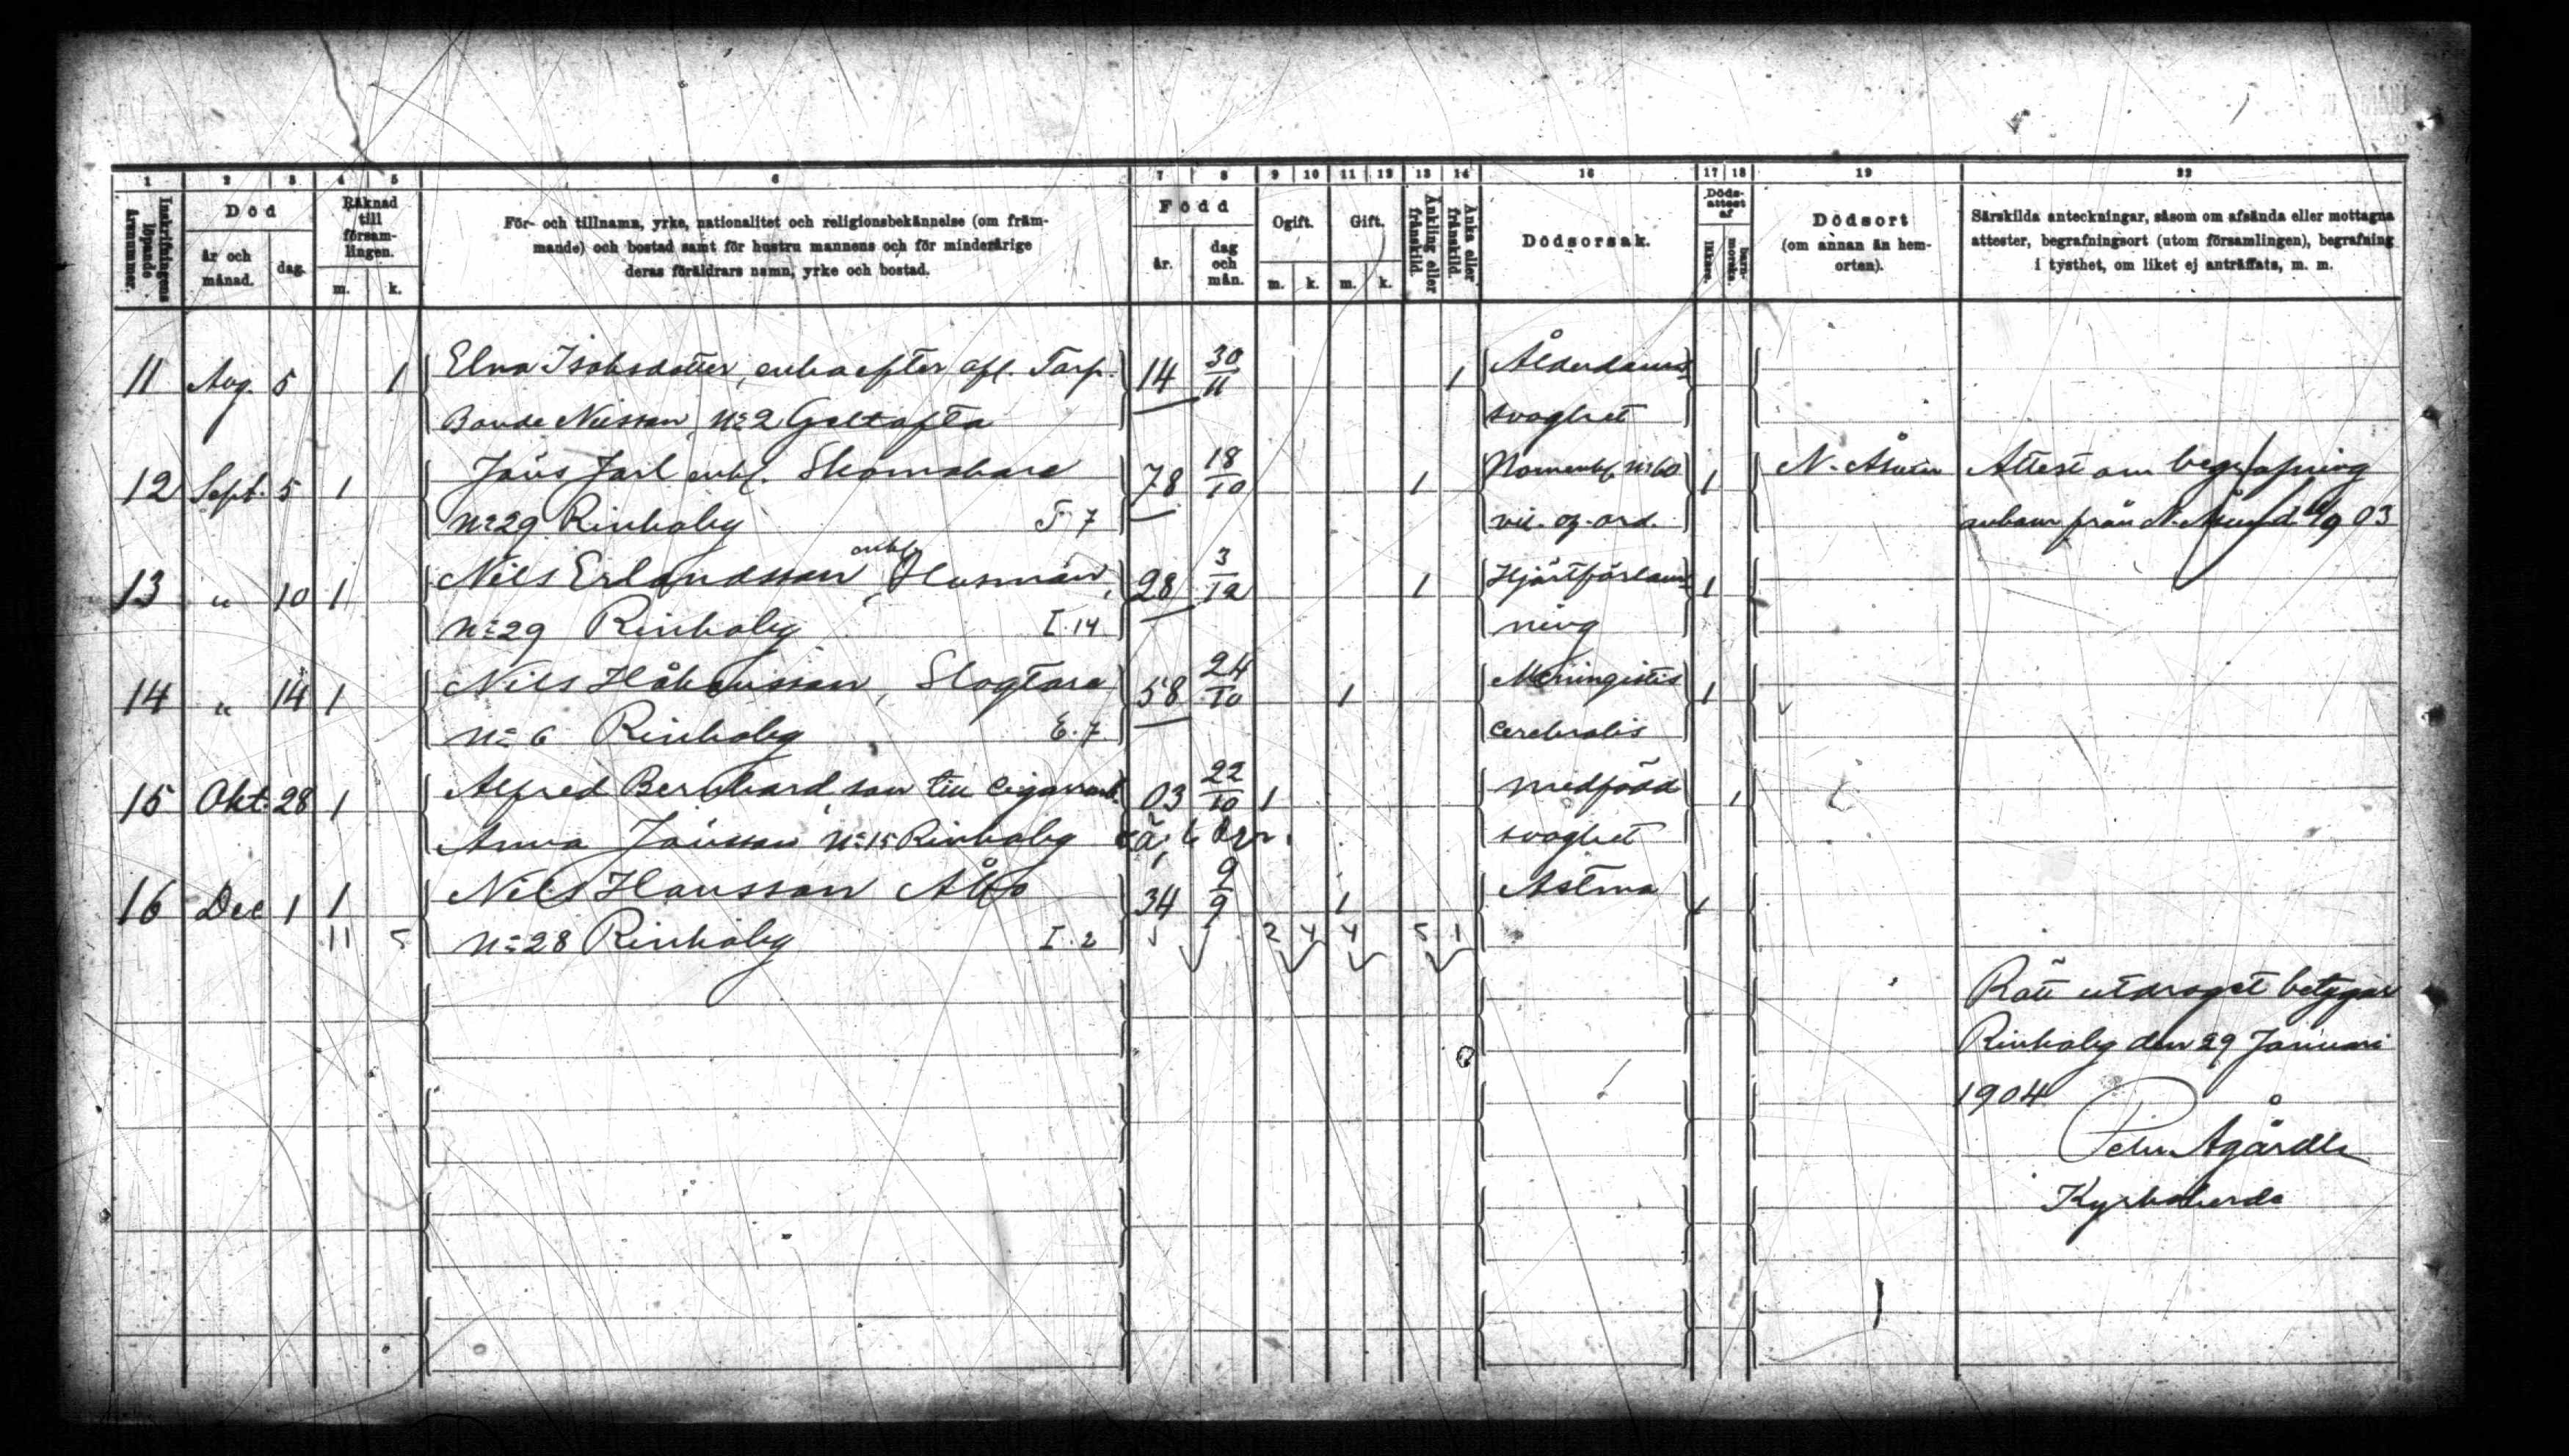 1 2 3 4 5 6 7 8 9 10 11 12 13 14 16 17 18 19 22
Inskrifningens löpande årsnummer.
Död
år och månad.
dag.
Räknad till församlingen.
m. k.
För- och tillnamn, yrke, nationalitet och religionsbekännelse (om främ-
mande) och bostad samt för hustru mannens och för minderårige
deras föräldrars namn, yrke och bostad.
Född
år.
dag och mån.
Ogift.
m. k.
Gift.
m. k.
Änkling eller frånskild.
Änka eller frånskild.
Dödsorsak.
Dödsattest af
läkare.
barnmorska.
Dödsort
(om annan än hem-
orten).
Särskilda anteckningar, såsom om afsända eller mottagna
attester, begrafningsort (utom församlingen), begrafning
i tysthet, om liket ej anträffats, m. m.
11 Aug. 5 1 Elna Isaksdotter, enka efter afl. Torp. 14 30/11 1 Ålderdoms-
Bonde Nilsson, No 2 Galtofta svaghet
12 Sept. 5 1 Jöns Jarl enkl. Skomakare 78 18/10 1 Nomenkl No 60 1 N. Åsum Attest om begrafning
No 29 Rinkaby F. 7 ankom från N. Åsum d. 03
13 " 10 1 Nils Erlandsson, enkl. Husman, 28 3/12 1 Hjärtförlam- 1
No 29 Rinkaby I. 14 ning
14 " 14 1 Nils Håkansson, Slagtare 58 24/10 1 Meningistis 1
No 6 Rinkaby E. 7. Cerebralis
15 Okt. 28 1 Alfred Bernhard, son till Cigarrarb. 03 22/10 1 medfödd 1
Anna Jönsson No 15 Rinkaby svaghet
16 Dec 1 1 Nils Hansson Åbo 34 9/9 1 Astma 1
11 5 No 28 Rinkaby I. 2 2 4 4 5 1
Rätt utdraget betygar
Rinkaby den 29 Januari
1904
Pehr Agårdh
Kyrkoherde